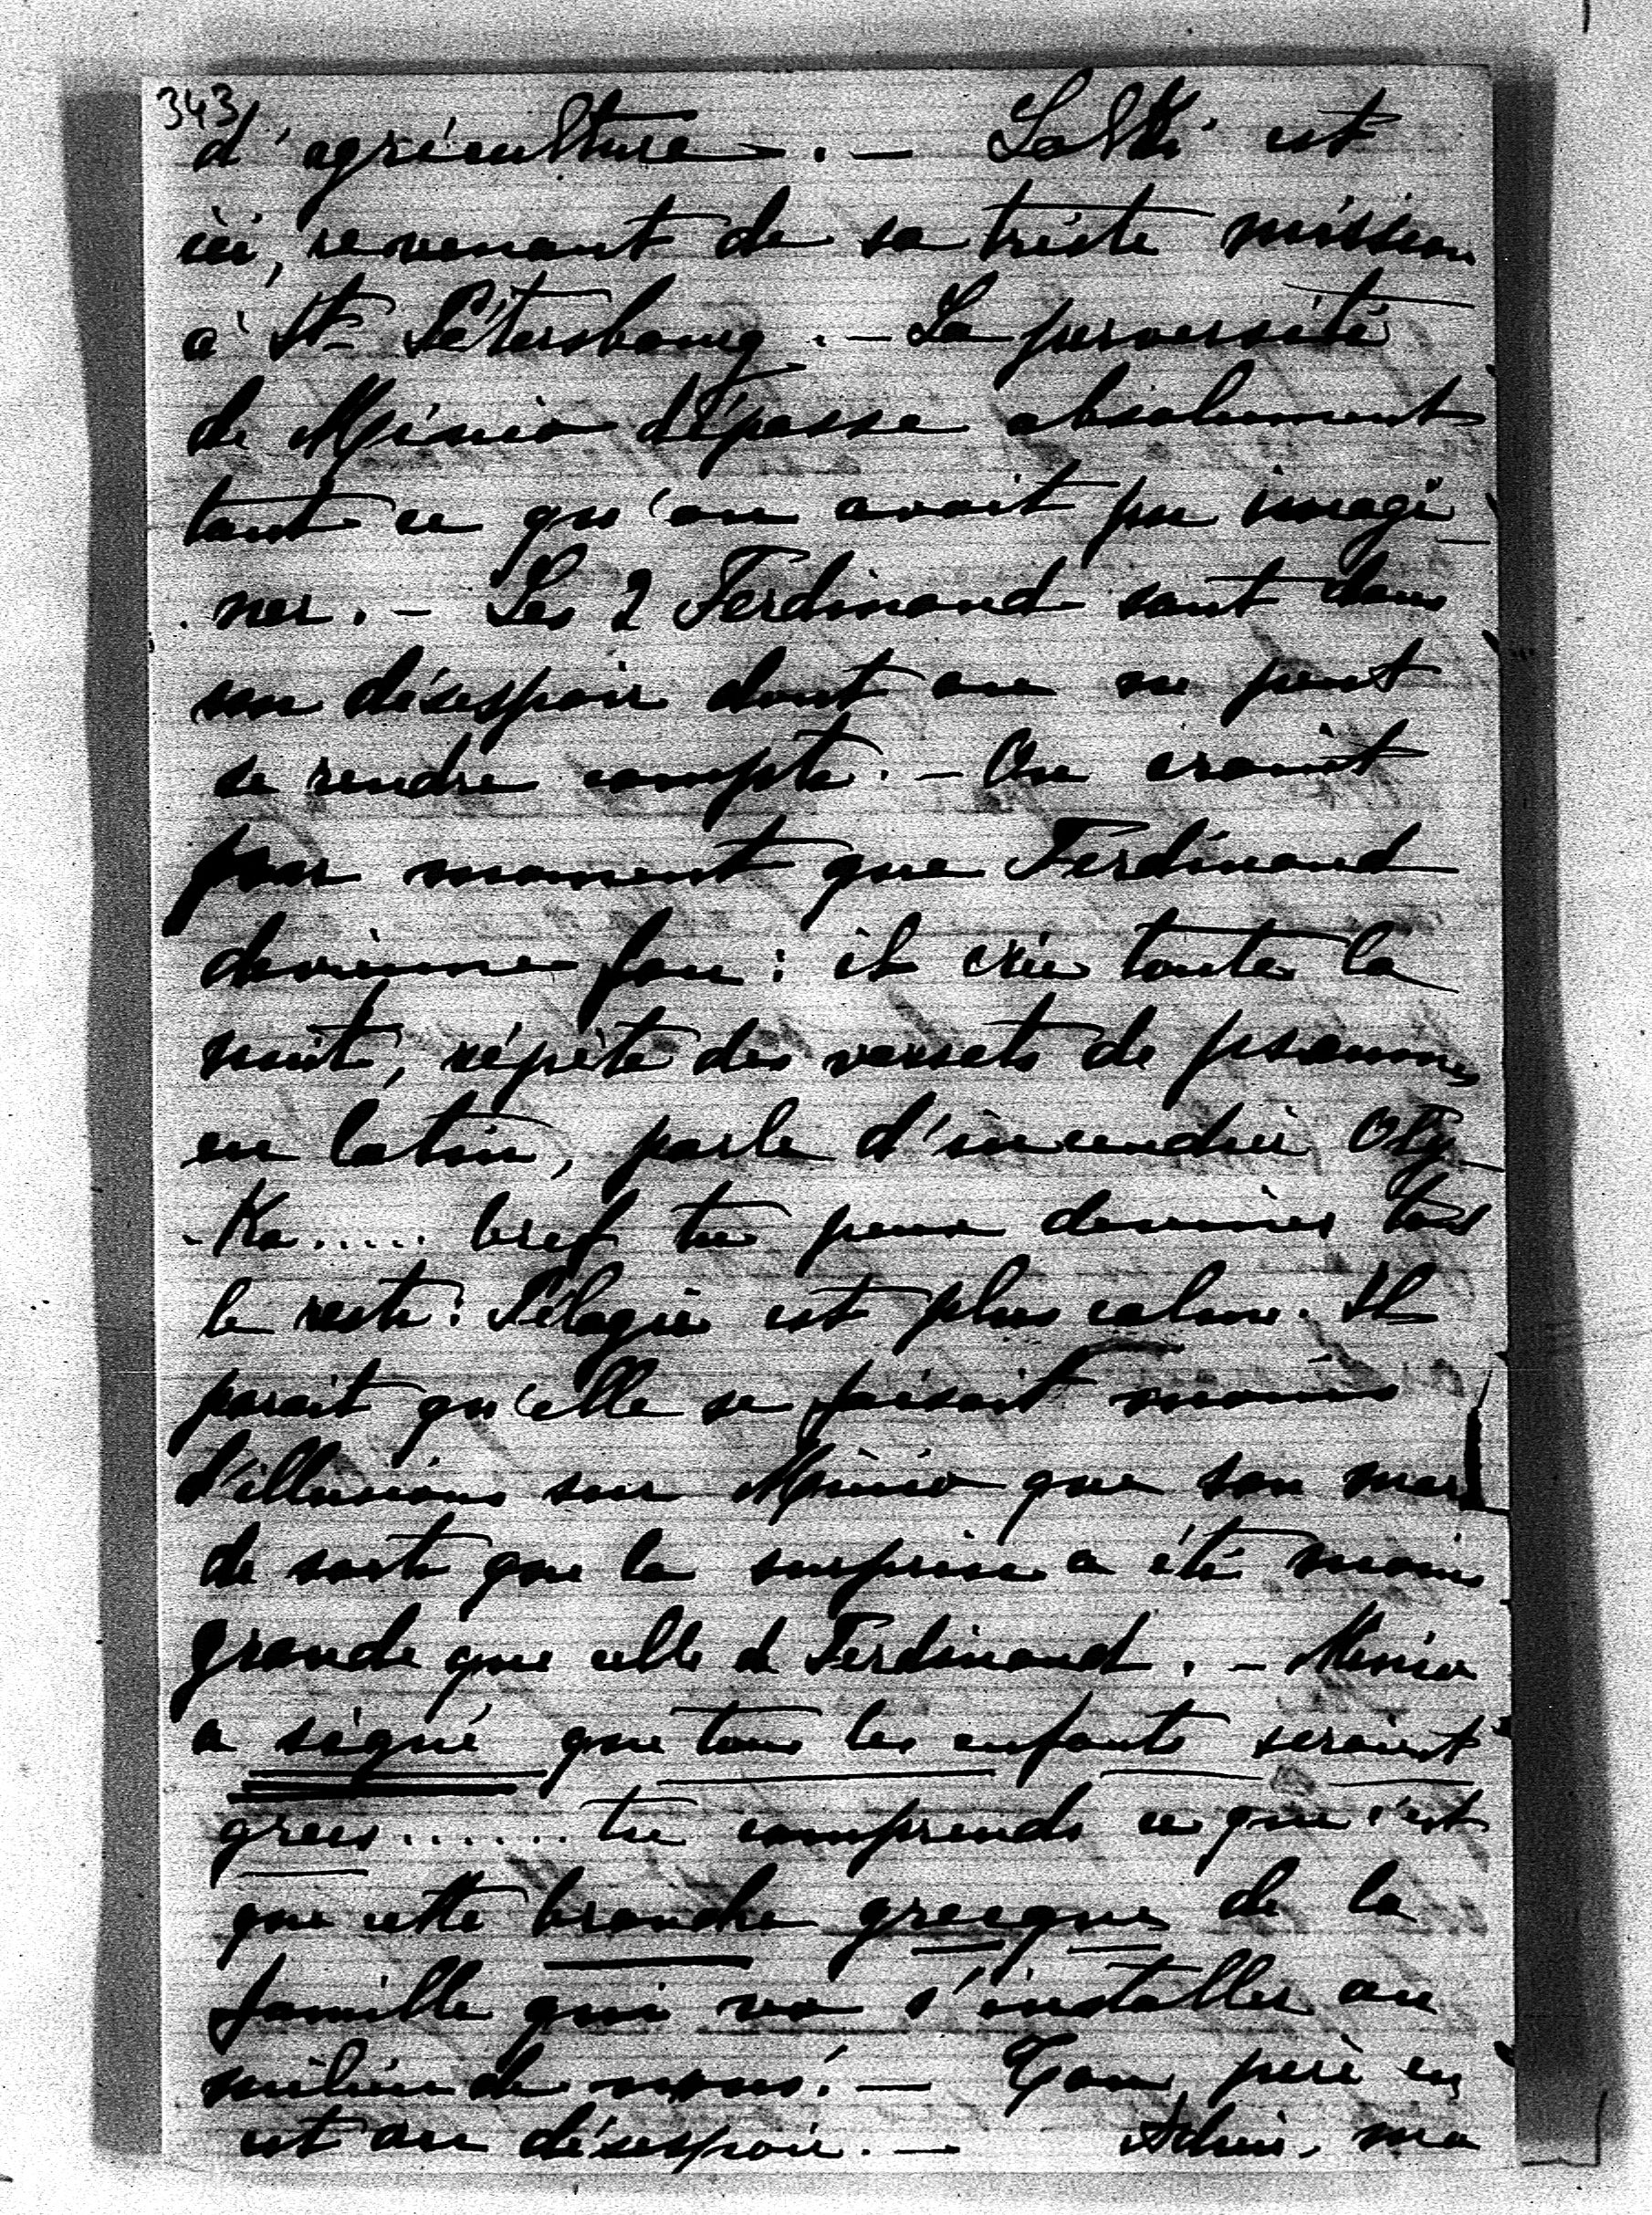 343
d'agriculture. — Salki est
ici, revenant de sa triste mission
à St Pétersbourg. — La perversité
de Minio dépasse absolument
tout ce qu'on avait pu imagi
ner. — Les 2 Ferdinand sont dans
un désespoir dont on ne peut
se rendre compte. — On craint
par moment que Ferdinand
devienne fou : il crie toute la
nuit, répète des versets de psaumes
en latin, parle d'incendier Oły-
-Ka..... bref tu peux deviner tout
le reste. Pélagie est plus calme. Il
parait qu'elle se faisait moins
d'illusions sur Minio que son mari
de sorte que la surprise a été moins
grande que celle de Ferdinand. — Minio
a signé que tous les enfants seraient
grecs....... tu comprends ce que c'est
que cette branche grecque de la
famille qui va s'installer au
milieu de nous! — Ton père en
est au désespoir. — Adieu, ma